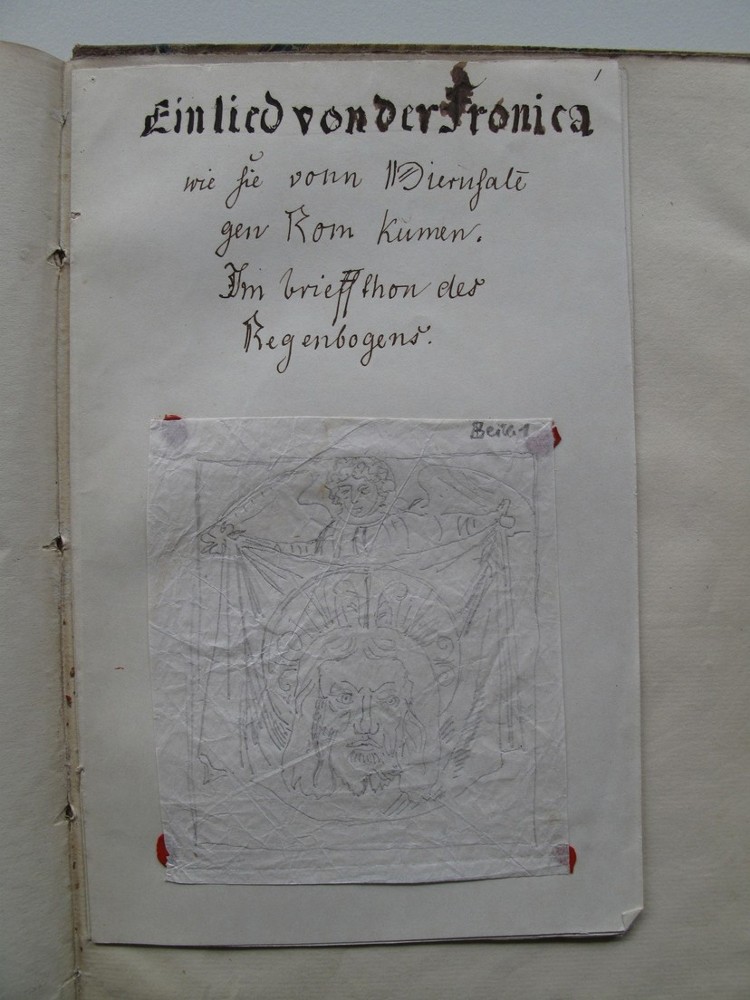 1
Ein lied von der Fronica
wie sie vonn Hierusalē
gen Rom kumen.
Im brieff thon des
Regenbogens.